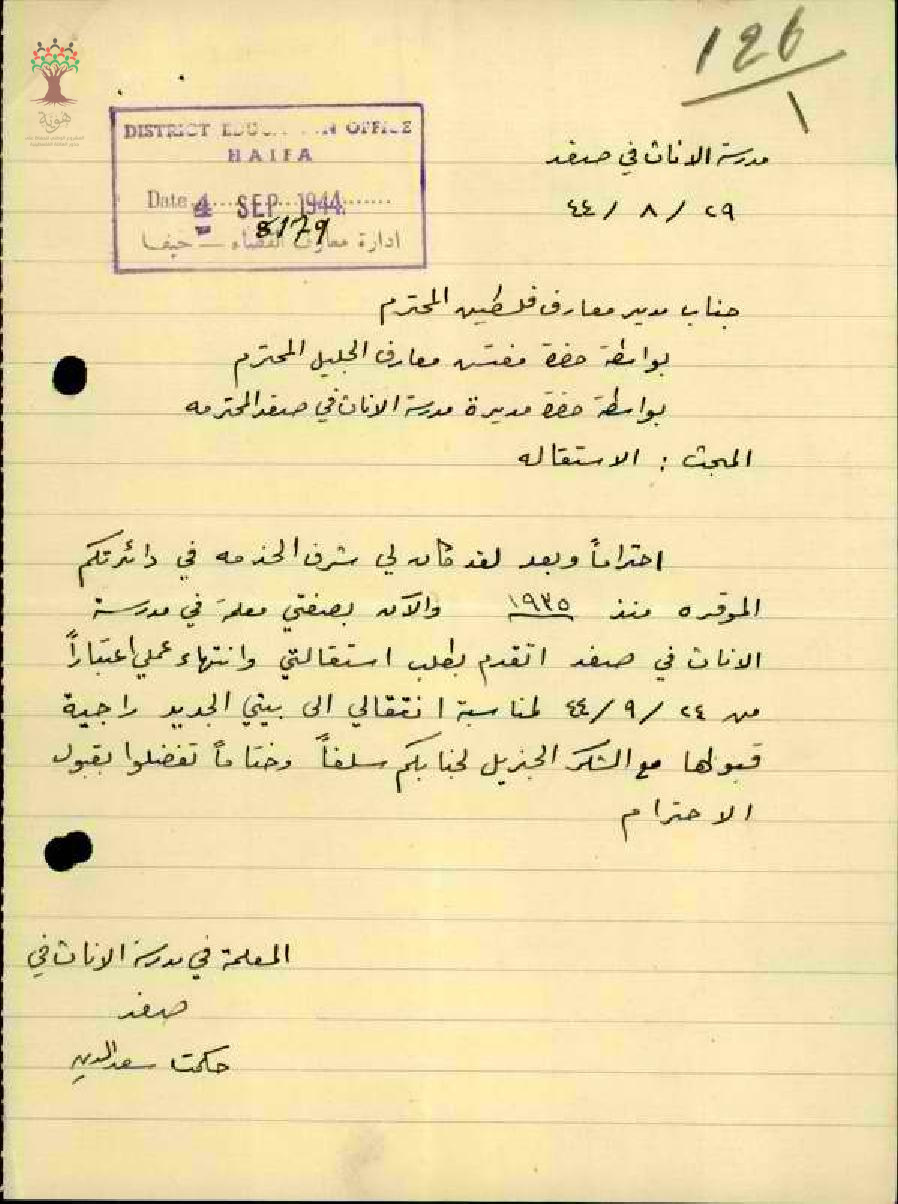 126
1
DISTRICT EDUCATION OFFICE
HAIFA
Date 4 SEP 1944
8179
ادارة معارف القضاء — حيفا
هوية
مدرسة الاناث في صفد
٢٩ / ٨ / ٤٤
جناب مدير معارف فلسطين المحترم
بواسطة حضرة مفتش معارف الجليل المحترم
بواسطة حضرة مديرة مدرسة الاناث في صفد المحترمه
المبحث : الاستقاله
احتراماً وبعد لقد كان لي شرف الخدمه في دائرتكم
الموقره منذ ١٩٣٥ والآن بصفتي معلمة في مدرسة
الاناث في صفد اتقدم بطلب استقالتي وانتهاء عملي اعتباراً
من ٢٤ / ٩ / ٤٤ لمناسبة انتقالي الى بيتي الجديد راجية
قبولها مع الشكر الجزيل لجنابكم سلفاً وختاماً تفضلوا بقبول
الاحترام
المعلمة في مدرسة الاناث في
صفد
حكمت سعد الدين